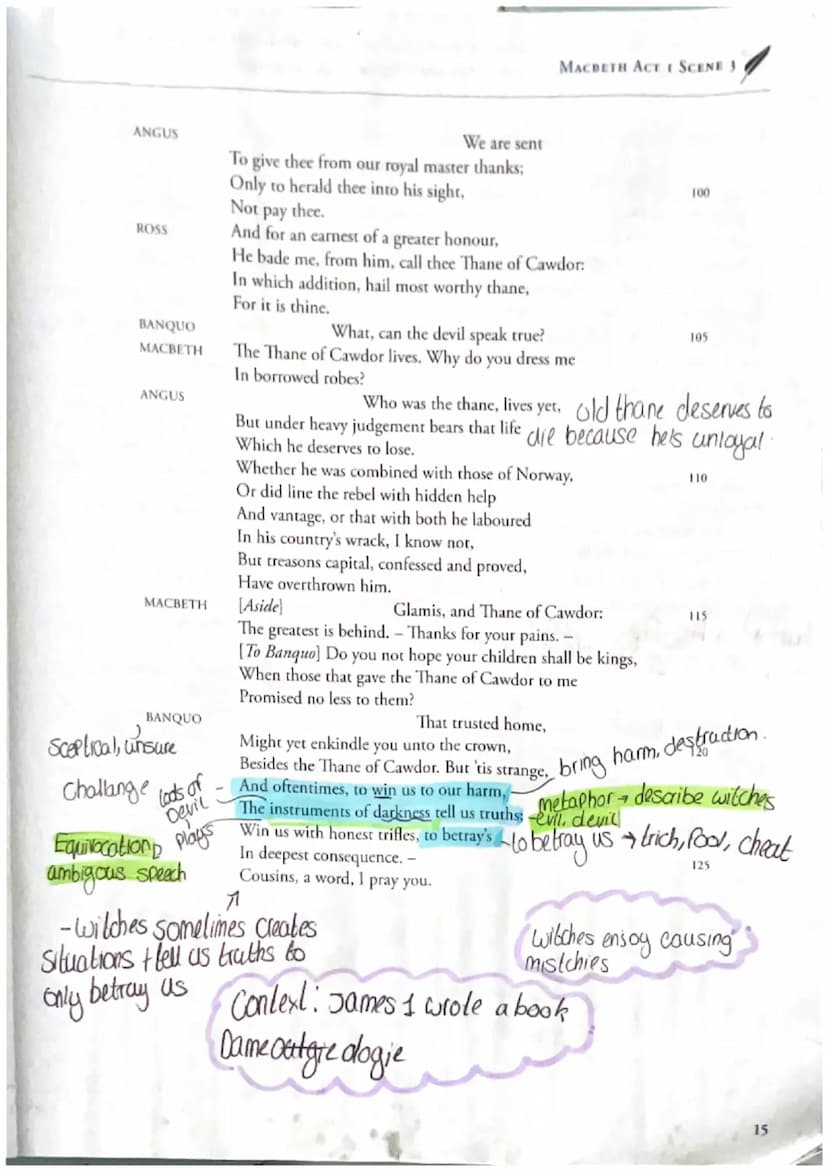 MACBETH ACT 1 SCENE 3
ANGUS We are sent
To give thee from our royal master thanks;
Only to herald thee into his sight, 100
Not pay thee.
ROSS And for an earnest of a greater honour,
He bade me, from him, call thee Thane of Cawdor:
In which addition, hail most worthy thane,
For it is thine.
BANQUO What, can the devil speak true? 105
MACBETH The Thane of Cawdor lives. Why do you dress me
In borrowed robes?
ANGUS Who was the thane, lives yet,
old thane deserves to
But under heavy judgement bears that life
die because he's unloyal.
Which he deserves to lose.
Whether he was combined with those of Norway, 110
Or did line the rebel with hidden help
And vantage, or that with both he laboured
In his country's wrack, I know not,
But treasons capital, confessed and proved,
Have overthrown him.
MACBETH [Aside] Glamis, and Thane of Cawdor: 115
The greatest is behind. – Thanks for your pains. –
[To Banquo] Do you not hope your children shall be kings,
When those that gave the Thane of Cawdor to me
Promised no less to them?
BANQUO That trusted home,
sceptical, unsure
Might yet enkindle you unto the crown,
Besides the Thane of Cawdor. But 'tis strange, 120
bring harm, destruction.
Challange
lads of
Devil
plays
And oftentimes, to win us to our harm,
The instruments of darkness tell us truths;
metaphor → describe witches
- evil, devil
Win us with honest trifles, to betray's
to betray us → trich, fool, cheat
Equivocation
ambigous speech
In deepest consequence. – 125
Cousins, a word, I pray you.
- witches sometimes creates
situations + tell us truths to
only betray us
witches enjoy causing
mistchies
Context: James 1 wrote a book
15